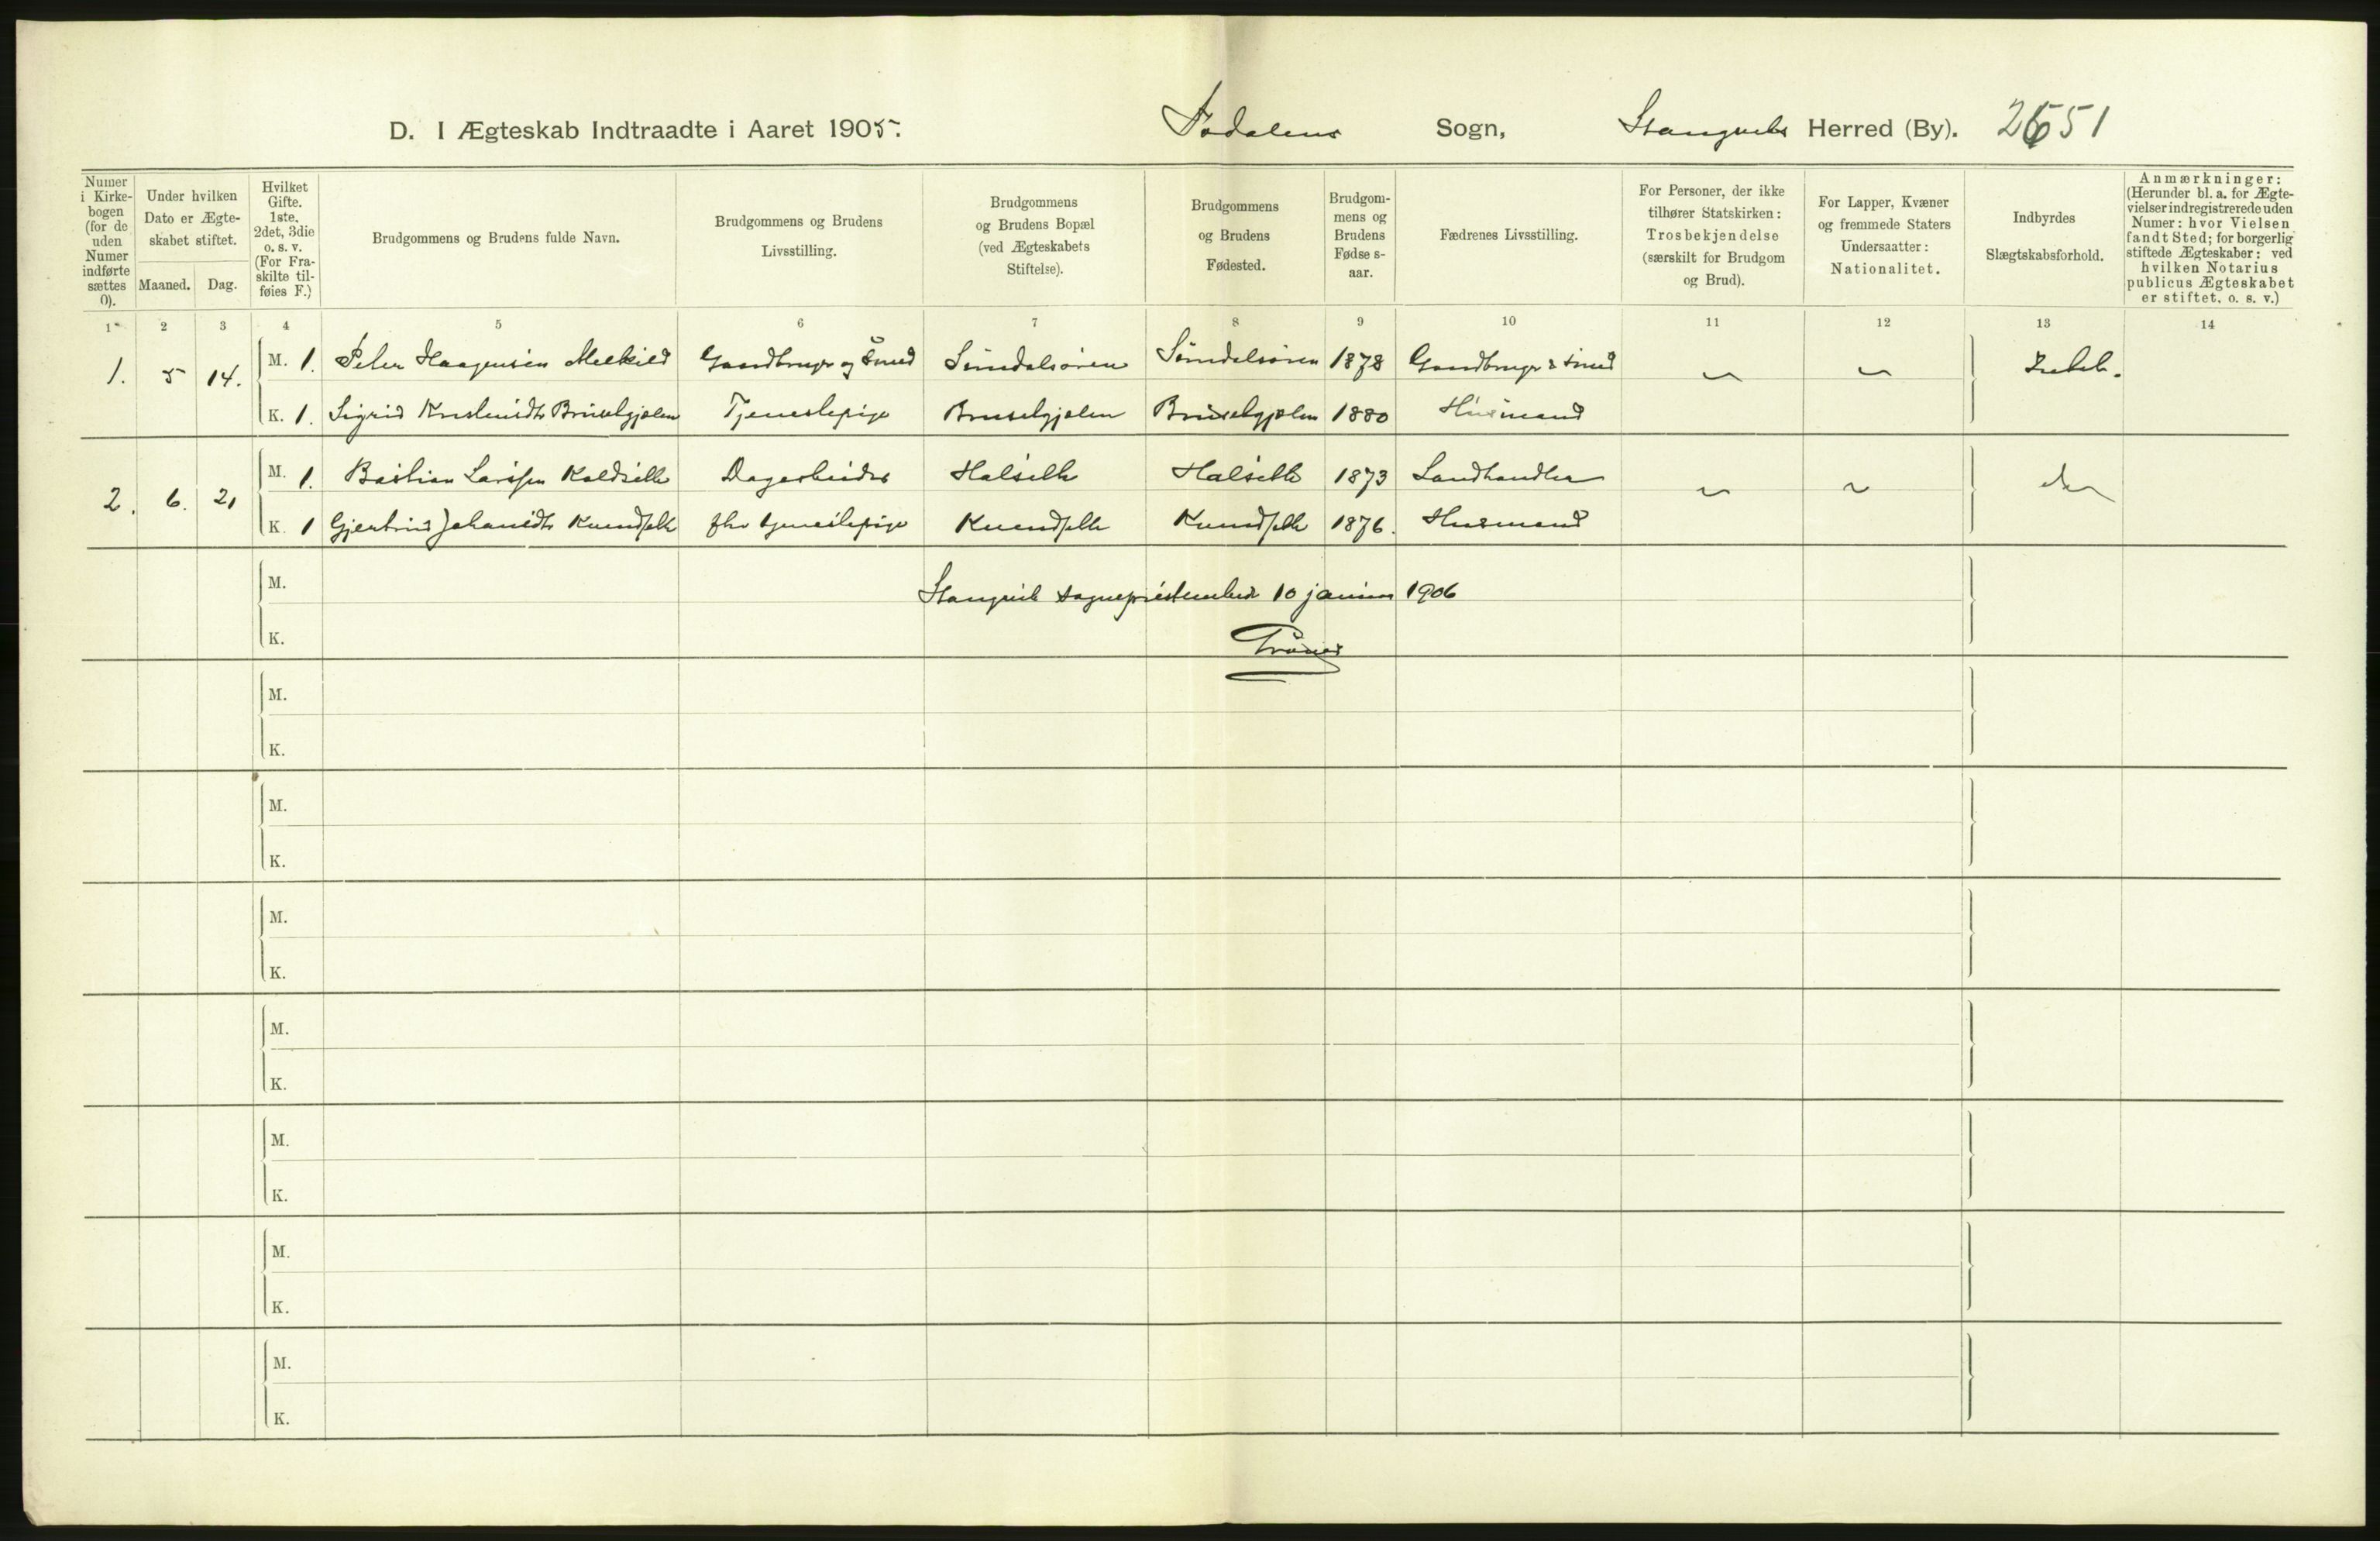 D. I Ægteskab Indtraadte i Aaret 1905. Todalens Sogn, Stangviks Herred (By). 2651
Numer i Kirkebogen (for de uden Numer indførte sættes 0).
Under hvilken Dato er Ægteskabet stiftet.
Maaned. Dag.
Hvilket Gifte. 1ste, 2det, 3die o. s. v. (For Fraskilte tilføies F.)
Brudgommens og Brudens fulde Navn.
Brudgommens og Brudens Livsstilling.
Brudgommens og Brudens Bopæl (ved Ægteskabets Stiftelse).
Brudgommens og Brudens Fødested.
Brudgommens og Brudens Fødselsaar.
Fædrenes Livsstilling.
For Personer, der ikke tilhører Statskirken: Trosbekjendelse (særskilt for Brudgom og Brud).
For Lapper, Kvæner og fremmede Staters Undersaatter: Nationalitet.
Indbyrdes Slægtskabsforhold.
Anmærkninger: (Herunder bl. a. for Ægtevielser indregistrerede uden Numer: hvor Vielsen fandt Sted; for borgerlig stiftede Ægteskaber: ved hvilken Notarius publicus Ægteskabet er stiftet. o. s. v.)
1 2 3 4 5 6 7 8 9 10 11 12 13 14
1. 5 14. M. 1. Peter Haagensen Melkild Gaardbruger og Smed 1878 Gaardbruger & smed
K. 1. Sigrid Tjenestepige 1880 Husmand
2. 6. 21 M. 1. Bastian Larssen Dagarbeider Halseth Halseth 1873 Landhandler
K. 1 Gjertrud Johansdtr tjenestepige 1876. Husmand
M. Stangvik sogneprestembede 10 januar 1906
K.
M.
K.
M.
K.
M.
K.
M.
K.
M.
K.
M.
K.
M.
K.